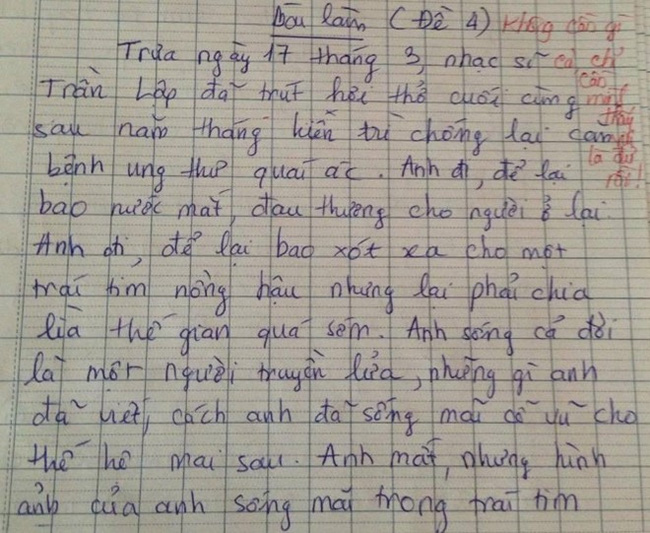 Bài làm (Đề 4)
Không cần gì cả chỉ
cần một
thầy
là đủ
rồi!
Trưa ngày 17 tháng 3, nhạc sĩ
Trần Lập đã trút hơi thở cuối cùng
sau năm tháng kiên trì chống lại căn
bệnh ung thư quái ác. Anh đi, để lại
bao nước mắt, đau thương cho người ở lại.
Anh đi, để lại bao xót xa cho một
trái tim nồng hậu nhưng lại phải chia
lìa thế gian quá sớm. Anh sống cả đời
là một người truyền lửa, những gì anh
đã viết, cách anh đã sống mãi cổ vũ cho
thế hệ mai sau. Anh mất, nhưng hình
ảnh của anh sống mãi trong trái tim